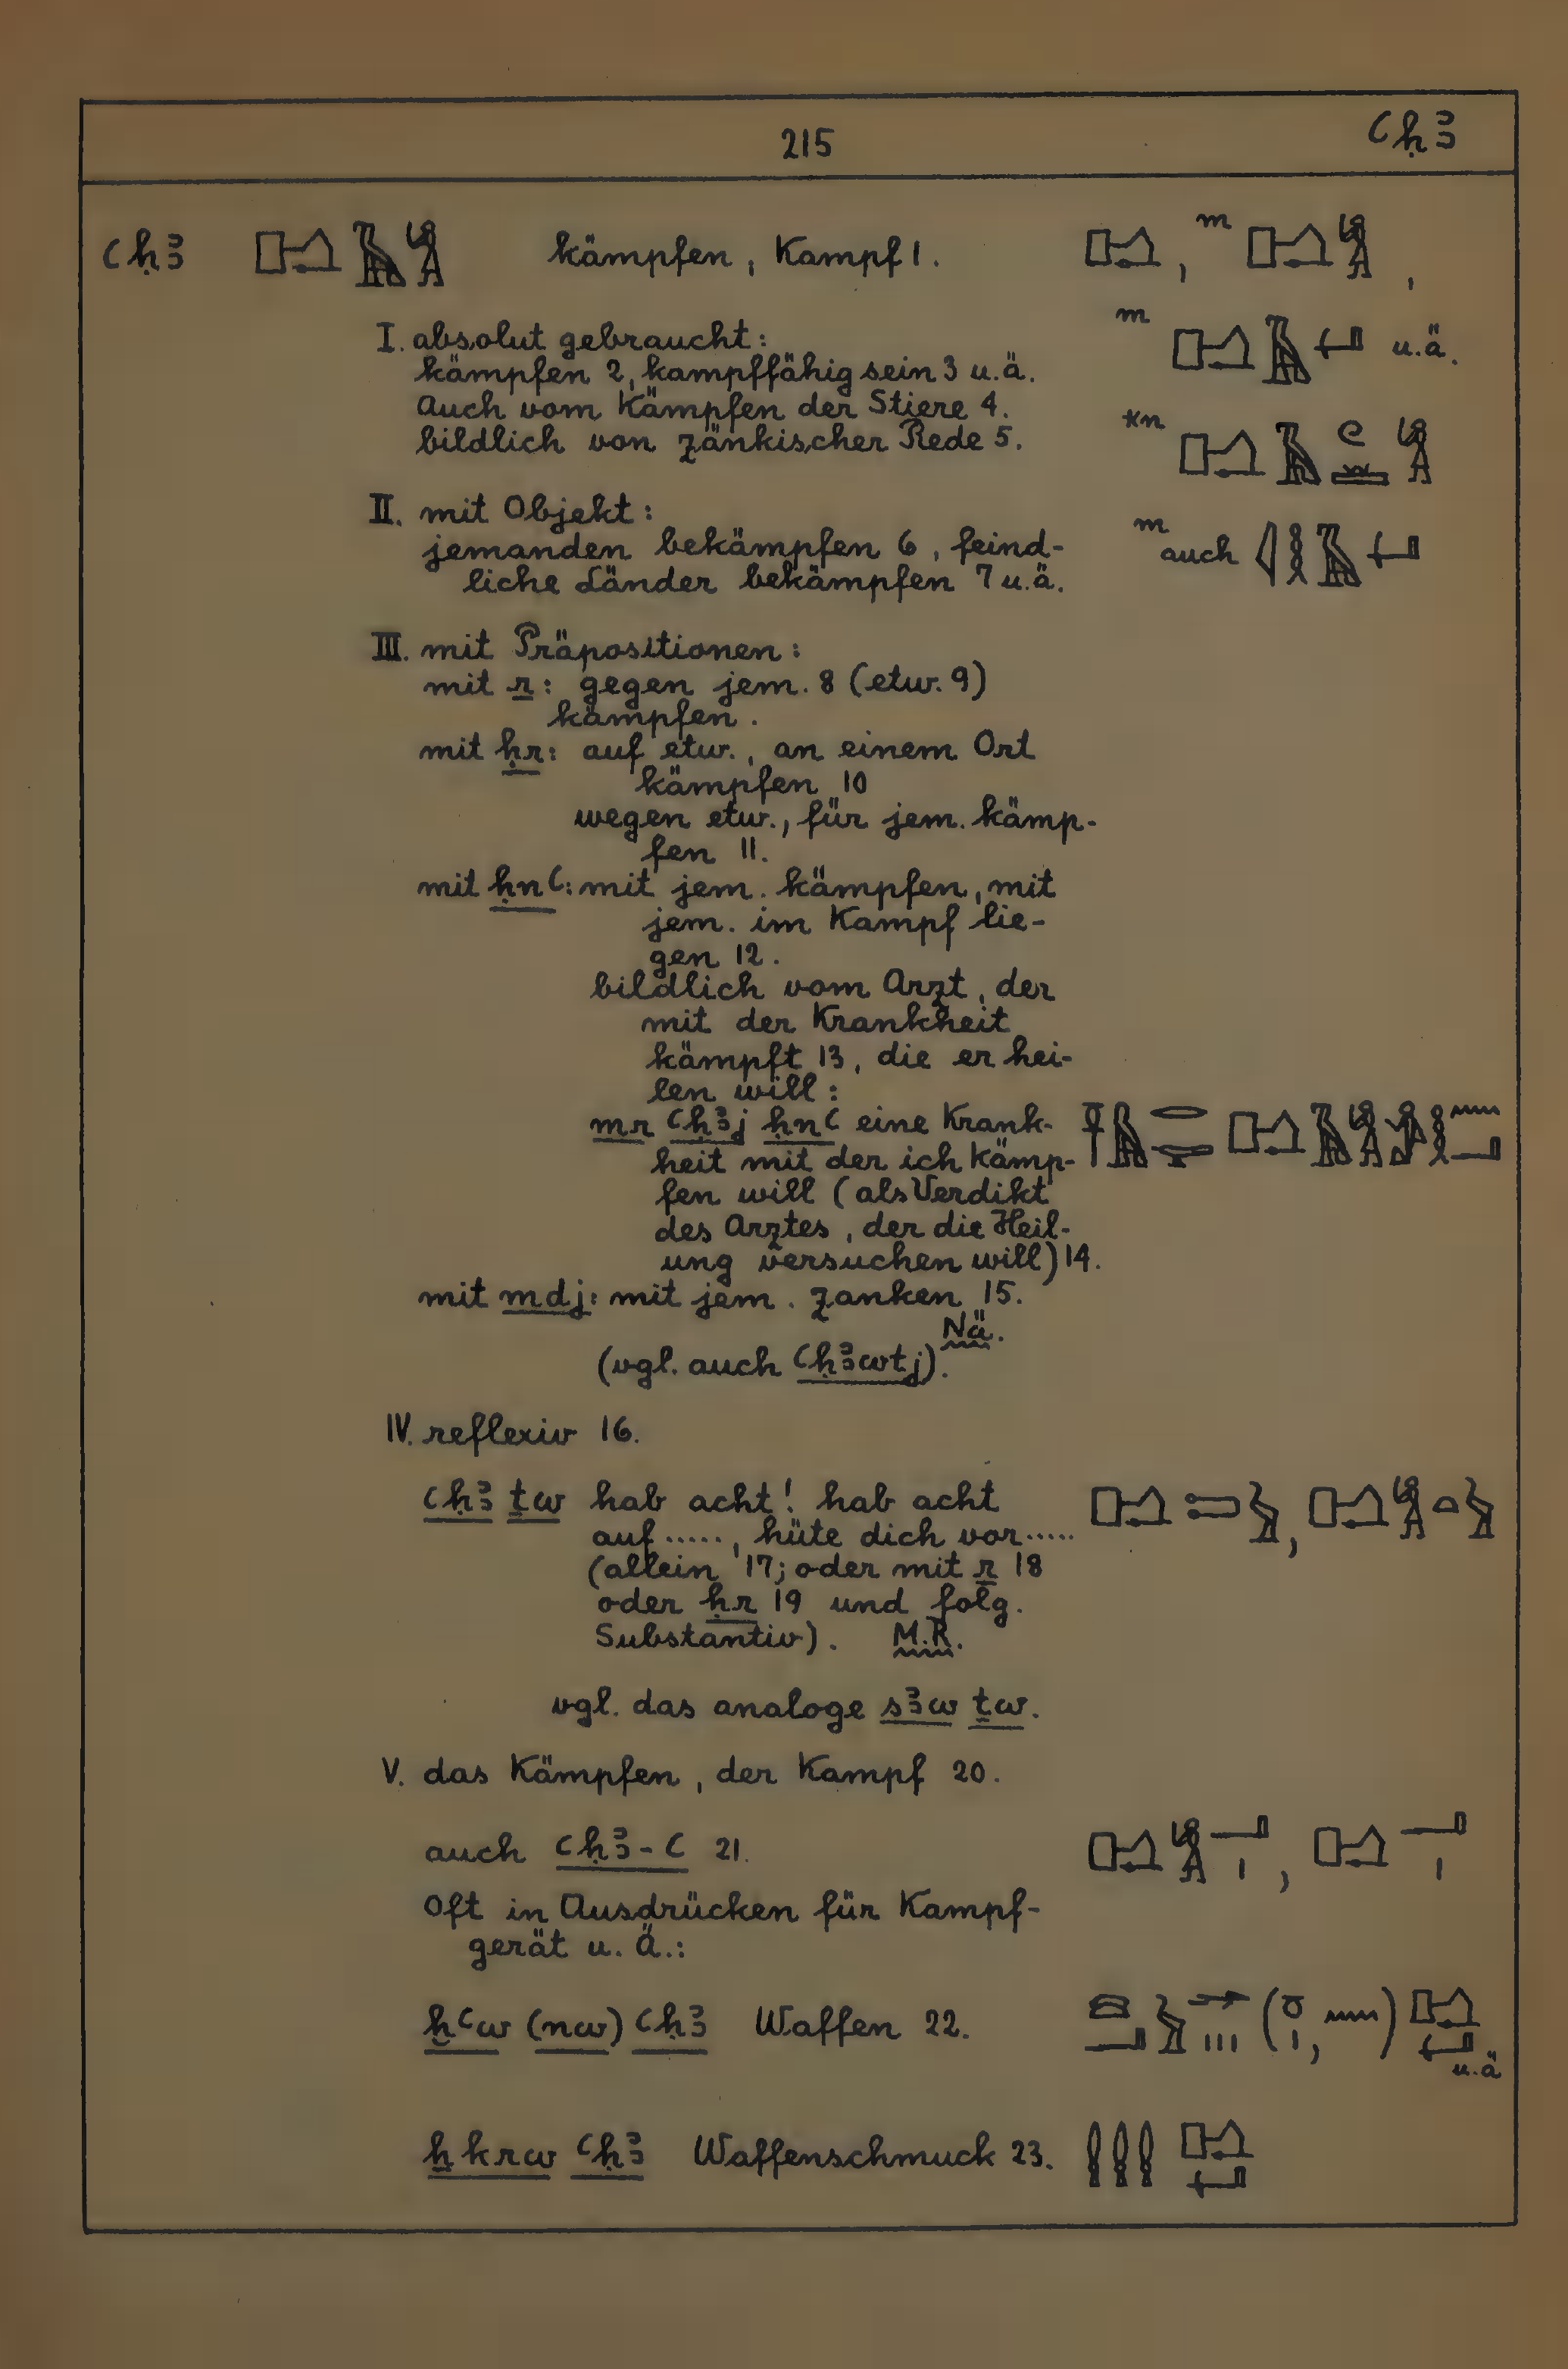 215 ꜥḥꜣ
ꜥḥꜣ kämpfen, Kampf 1.
I. absolut gebraucht:
kämpfen 2, kampffähig sein 3 u.ä.
Auch vom Kämpfen der Stiere 4.
bildlich von zänkischer Rede 5.
m
m
u.ä.
*n
m auch
II. mit Objekt:
jemanden bekämpfen 6, feind-
liche Länder bekämpfen 7 u.ä.
III. mit Präpositionen:
mit r: gegen jem. 8 (etw. 9)
kämpfen.
mit ḥr: auf etw., an einem Ort
kämpfen 10
wegen etw., für jem. kämp-
fen 11.
mit ḥnꜥ: mit jem. kämpfen, mit
jem. im Kampf lie-
gen 12.
bildlich vom Arzt, der
mit der Krankheit
kämpft 13, die er hei-
len will:
mr ꜥḥꜣj ḥnꜥ eine Krank-
heit mit der ich kämp-
fen will (als Verdikt
des Arztes, der die Heil-
ung versuchen will) 14.
mit mdj: mit jem. zanken 15.
Nä.
(vgl. auch ꜥḥꜣwtj).
IV. reflexiv 16.
ꜥḥꜣ ṯw hab acht! hab acht
auf ....., hüte dich vor .....
(allein 17; oder mit r 18
oder ḥr 19 und folg.
Substantiv). M.R.
vgl. das analoge sꜣw ṯw.
V. das Kämpfen, der Kampf 20.
auch ꜥḥꜣ-ꜥ 21.
Oft in Ausdrücken für Kampf-
gerät u. Ä.:
ḫꜥw (nw) ꜥḥꜣ Waffen 22.
u.ä
ẖkrw ꜥḥꜣ Waffenschmuck 23.